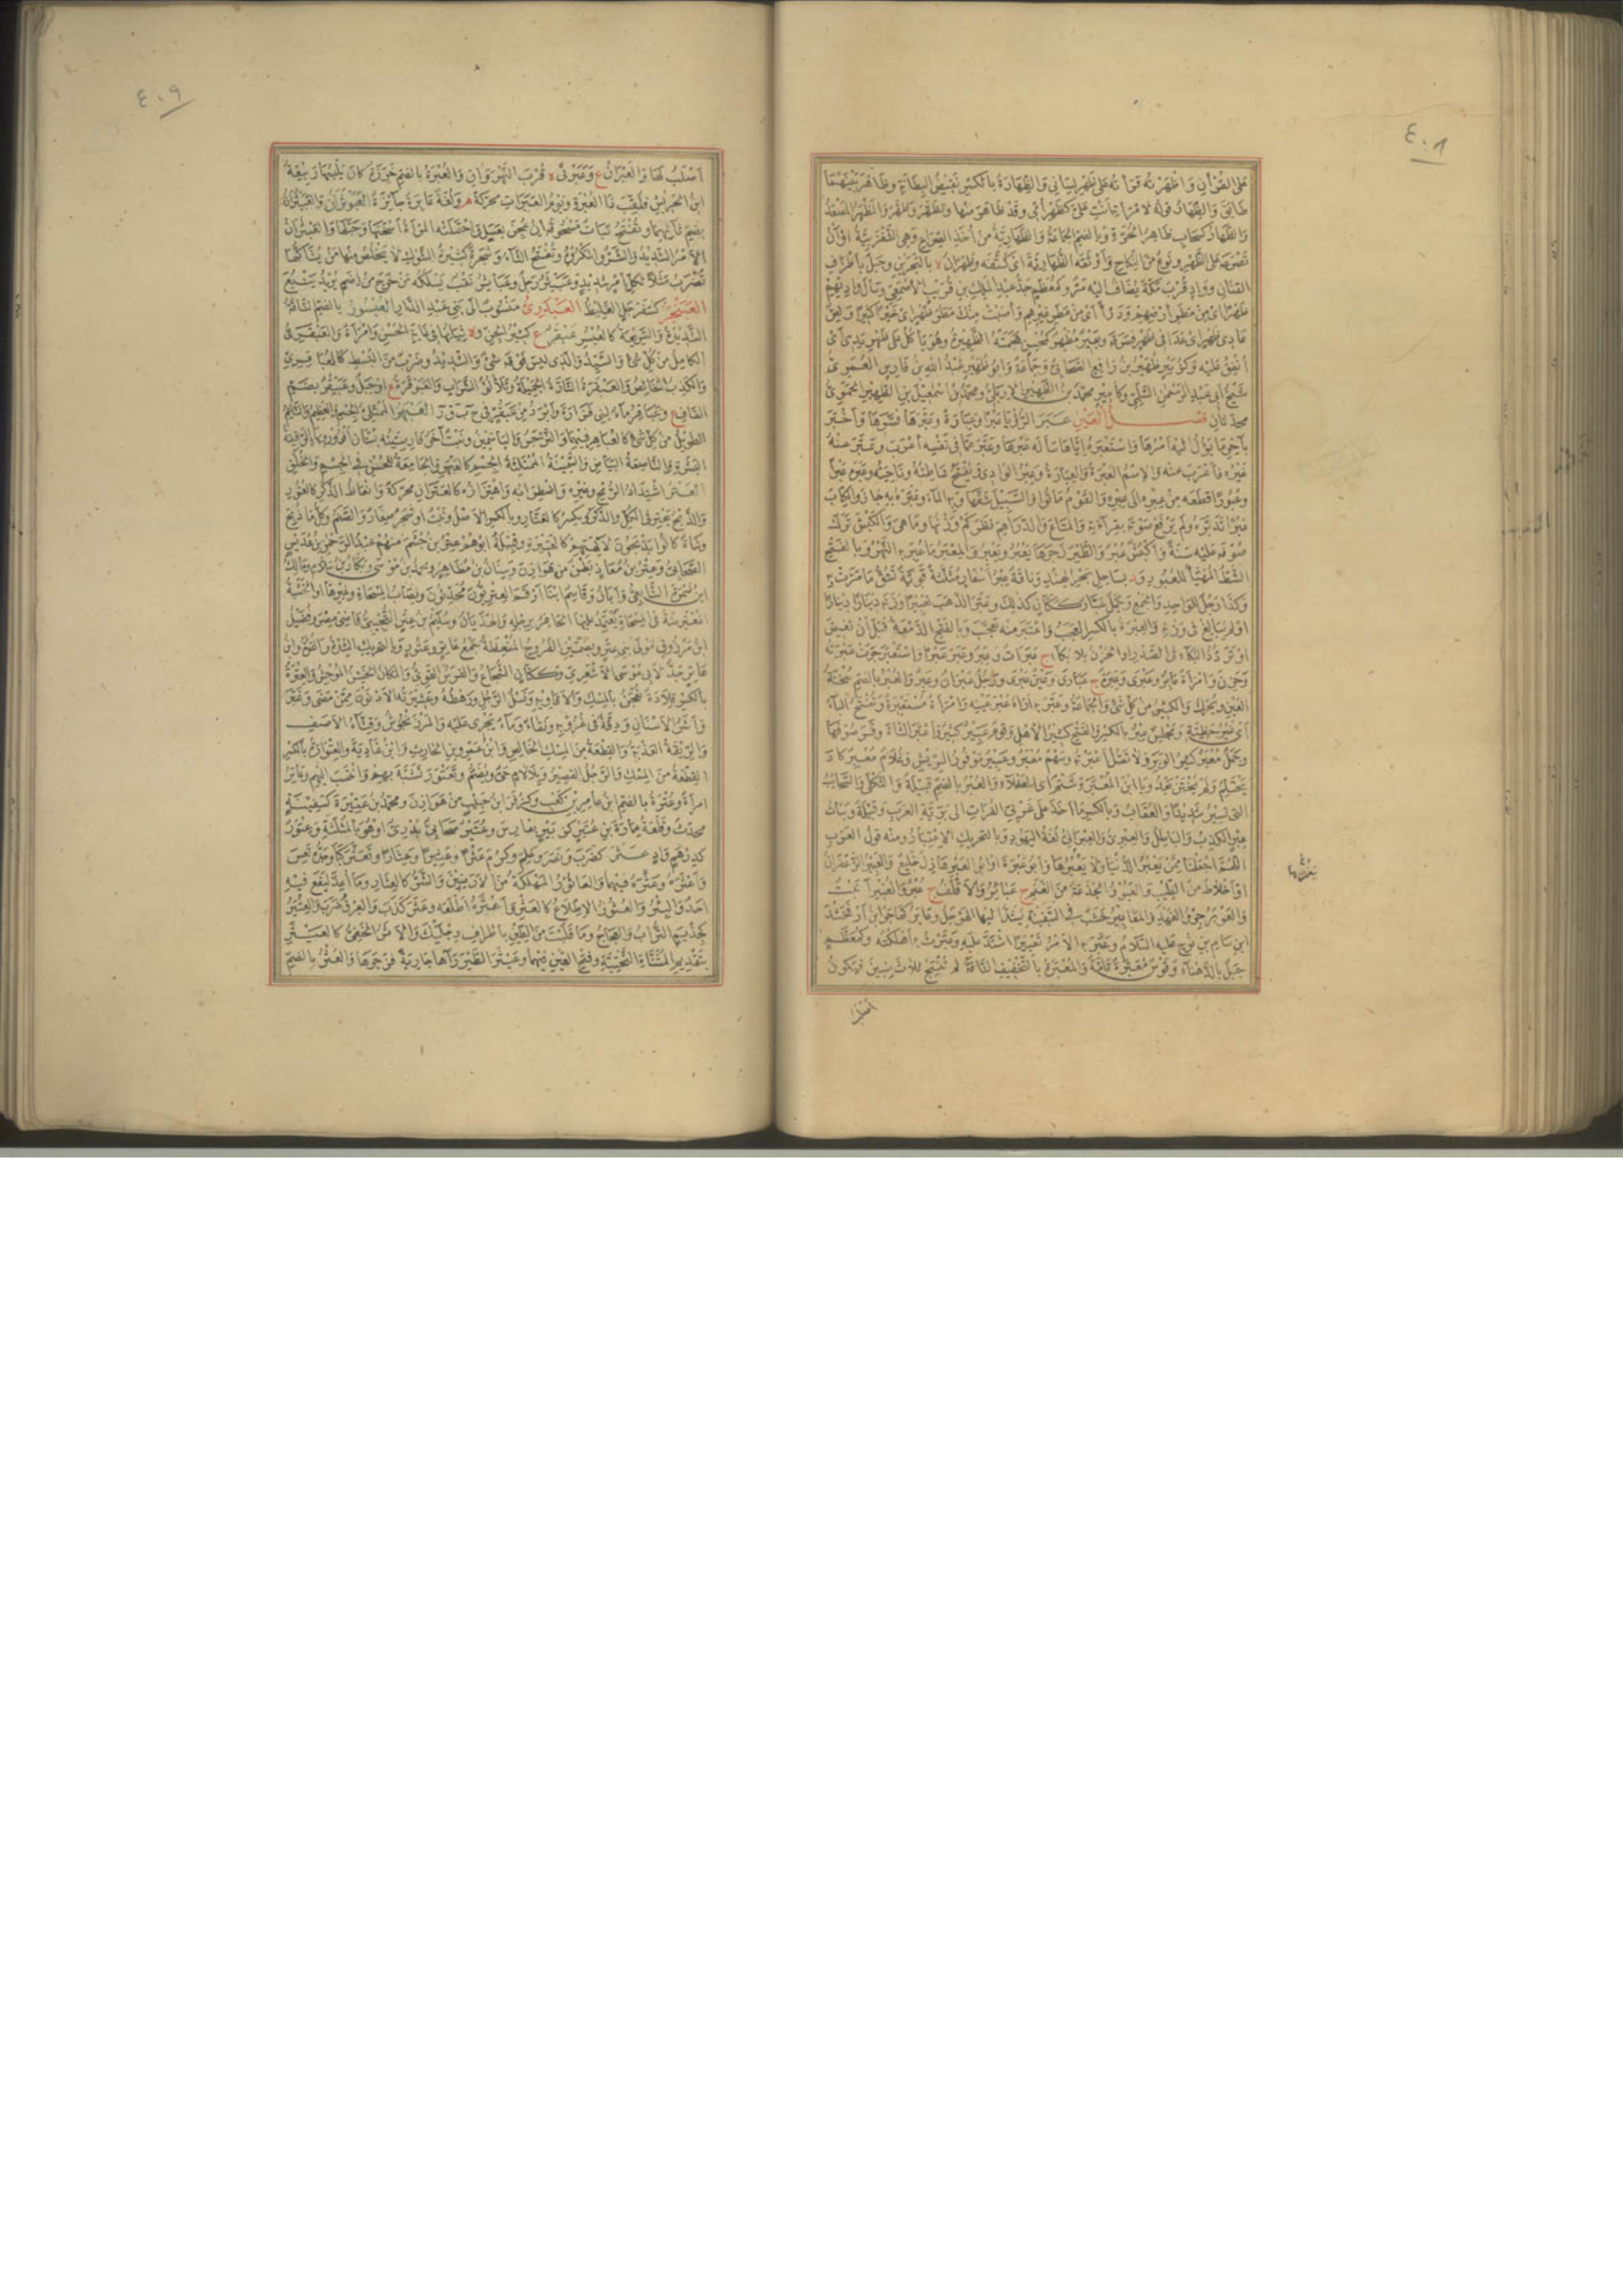 ٤٠٨
على القرآن واظهرته قرأته على ظهر لساني والظهارة بالكسر نقيض البطانة وظاهر بينهما
طابق والظهار قوله لامرأته انت علي كظهر امي وقد ظاهر منها وتظهر وظهر والمظهر المصعد
والظهار كسحاب ظاهر الحرة وبالضم الجماعة والظهارية من اخذ الصراع وهي الشغزبية او ان
تصرعه على الظهر ونوع من النكاح واوثقه الظهارية اي كتفه وظهران ة بالبحرين وجبل باطراف
القنان وواد قرب مكة يضاف اليه مر وكمعظم جد عبد الملك بن قريب الاصمعي وسال واديهم
ظهرا اي من مطر ارضهم ودرأ اي من مطر غيرهم
شيخ ابي عبد الرحمن السلمي وكامير محمد بن الظهير الاربلي ومحمد بن اسمعيل بن الظهير الحموي
محدثان فصل العين عبر الرؤيا عبرا وعبارة وعبرها فسرها واخبر
بآخر ما يؤول اليه امرها واستعبره اياها سأله عبرها وعبر عما في نفسه اعرب وعبر عنه
غيره فاعرب عنه والاسم العبرة والعبارة وعبر الوادي ويفتح شاطئه وناحيته وعبره عبرا
وعبورا قطعه من عبره الى عبره والقوم ماتوا والسبيل شقها وبه الماء وعبره به جاز والكتاب
عبرا تدبره ولم يرفع صوته بقراءته والمتاع والدراهم نظر كم وزنها وما هي والكبش ترك
صوفه عليه سنة واكبش عبر والطير زجرها يعبر ويعبر والمعبر ما عبر به النهر وبالفتح
الشط المهيأ للعبور ود بساحل بحر الهند وناقة عبر اسفار مثلثة قوية تشق ما مرت به
وكذا رجل للواحد والجمع وجمل عبار ككتان كذلك وعبر الذهب تعبيرا وزنه دينارا دينارا
او لم يبالغ في وزنه والعبرة بالكسر العجب واعتبر منه تعجب وبالفتح الدمعة قبل ان تفيض
او تردد البكاء في الصدر او الحزن بلا بكاء ج عبرات وعبر وعبر عبرا واستعبر جرت عبرته
وحزن وامرأة عابر وعبرى وعبرة ج عبارى وعين عبرى ورجل عبران وعبر والعبر بالضم سخنة
العين ويحرك والكثير من كل شيء والجماعة وعبر به اراه عبر عينه وامرأة مستعبرة وتفتح الباء
اي غير حظية ومجلس عبر بالكسر والفتح كثير الاهل وقوم عبير كثير واعبر الشاة وفر صوفها
وجمل معبر كثير الوبر ولا تقل اعبرته وسهم معبر وعبير موفور الريش وغلام معبر كاد
يحتلم ولم يختن بعد ويا ابن المعبرة شتم اي العفلاء والعبر بالضم قبيلة والثكلى والسحائب
التي تسير شديدا والعقاب وبالكسر ما اخذ على غربي الفرات الى برية العرب وقبيلة وبنات
عبر الكذب والباطل والعبرى والعبراني لغة اليهود وبالتحريك الاعتبار ومنه قول العرب
اللهم اجعلنا ممن يعبر الدنيا ولا يعبرها وابو عبرة او ابو العبر هازل خليع والعبير الزعفران
او اخلاط من الطيب والعبور الجذعة من الغنم ج عبائر والاقلف ج عبر والعبيراء نبت
والعوبر جرو الفهد والمعابير خشب في السفينة يشد اليها الهوجل وعابر كهاجر ابن ارفخشد
ابن سام بن نوح عليه السلام وعبر به الامر تعبيرا اشتد عليه وعبرت به اهلكته وكمعظم
جبل بالدهناء وقوس معبرة تامة والمعبرة بالتخفيف الناقة لم تنتج ثلاث سنين فيكون
اصلب
٤٠٩
اصلب لها والعبران ع وعبرتى ة قرب النهروان والعبرة بالضم خرزة كان يلبسها ربيعة
ابن الحريش فلقب ذا العبرة ويوم العبرات محركة م ولغة عابرة جائزة العبوثران والعبيثران
بضم ثائهما وتفتح نبات مسحوقه ان عجن بعسل واحتملته المرأة اسخنها وحبلها والعبيثران
الامر الشديد والشر والمكروه وتفتح الثاء وشجرة كثيرة الشوك لا يخلص منها من يشاكها
تضرب مثلا لكل امر شديد وعبيثر رجل وعباثر نقب يسلكه من خرج من اضم يريد ينبع
العبنجر كسفرجل الغليظ العبدري منسوب الى بني عبد الدار العبسور بالضم الناقة
الشديدة والسريعة كالعبسر عبقر ع كثير الجن وة ثيابها في غاية الحسن وامرأة والعبقري
الكامل من كل شيء والسيد والذي ليس فوقه شيء والشديد وضرب من البسط كالعباقري
والكذب الخالص والعبقرة التارة الجميلة وتلألؤ السراب والعبوقرة ع او جبل وعبيقر بضم
القاف ع وعباقر ماء لبني فزارة وابرد من عبقر في ح ب ق ر العبهر الممتلئ الجسم والعظيم والناعم
الطويل من كل شيء كالعباهر فيهما والنرجس والياسمين ونبت آخر
البشرة والناصعة البياض والسمينة الممتلئة الجسم كالعبهر والجامعة للحسن في الجسم والخلق
العتر اشتداد الرمح وغيره واضطرابه واهتزازه كالعتران محركة وانعاظ الذكر كالعتور
والذبح يعتر في الكل والذكر ويكسر كالعتار وبالكسر الاصل ونبت او شجر صغار والصنم وكل ما ذبح
وشاة كانوا يذبحونه لآلهتهم كالعتيرة وقبيلة ابوهم عتر بن جشم منهم عبد الرحمن بن عديس
الصحابي وعتر بن معاذ بطن من هوازن وسنان بن مظاهر ومحمد بن موسى وبكار بن سلام ومالك
ابن ضمرة التابعي وابان وقاسم ابنا ارقم العتريون محدثون ونصاب المسحاة وغيرها او الخشبة
المعترضة في المسحاة يعتمد عليها الحافر برجله والهذيان وسليم بن عتر التجيبي قاضي مصر وفضيل
ابن مرزوق مولى بني عتر وبضمتين الفروج المنعظة جمع عاتر وعتور وبالتحريك الشدة والقوة وابن
عامر جد لابي موسى الاشعري وككتان الشجاع والفرس القوي والمكان الخشن الموحش والعترة
بالكسر قلادة تعجن بالمسك والافاويه ونسل الرجل ورهطه وعشيرته الادنون ممن مضى وغبر
واشر الاسنان ودقة في غروبه ونقاء وماء يجري عليه والمرزنجوش وقثاء الاصف
والريقة العذبة والقطعة من المسك الخالص وابن عمرو بن الحارث وابن غادية والعتوارة بالكسر
القطعة من المسك والرجل القصير وبلا لام حي ويضم وتعتور تشبه بهم وانتسب اليهم وعاتر
امرأة وعترة بالضم ابن عامر بن كعب وكزفر ابن حبيب من هوازن ومحمد بن عتيرة كسفينة
محدث وقلعة عمارة بن عتير
كدرهم واد عثر كضرب ونصر وعلم وكرم عثرا وعثيرا وعثارا وتعثر كبا وجده تعس
واعثره وعثره فيهما والعاثور المهلكة من الارضين والشر كالعثار وما اعد ليقع فيه
احد والبئر والعثور الاطلاع كالعثر واعثره اطلعه وعثر كذب والعرق ضرب والعثير
كحذيم التراب والعجاج وما قلبت من الطين باطراف رجليك والاثر الخفي كالعيثر
بتقديم المثناة التحتية وفتح العين فيهما وعيثر الطير رآها جارية فزجرها والعثر بالضم